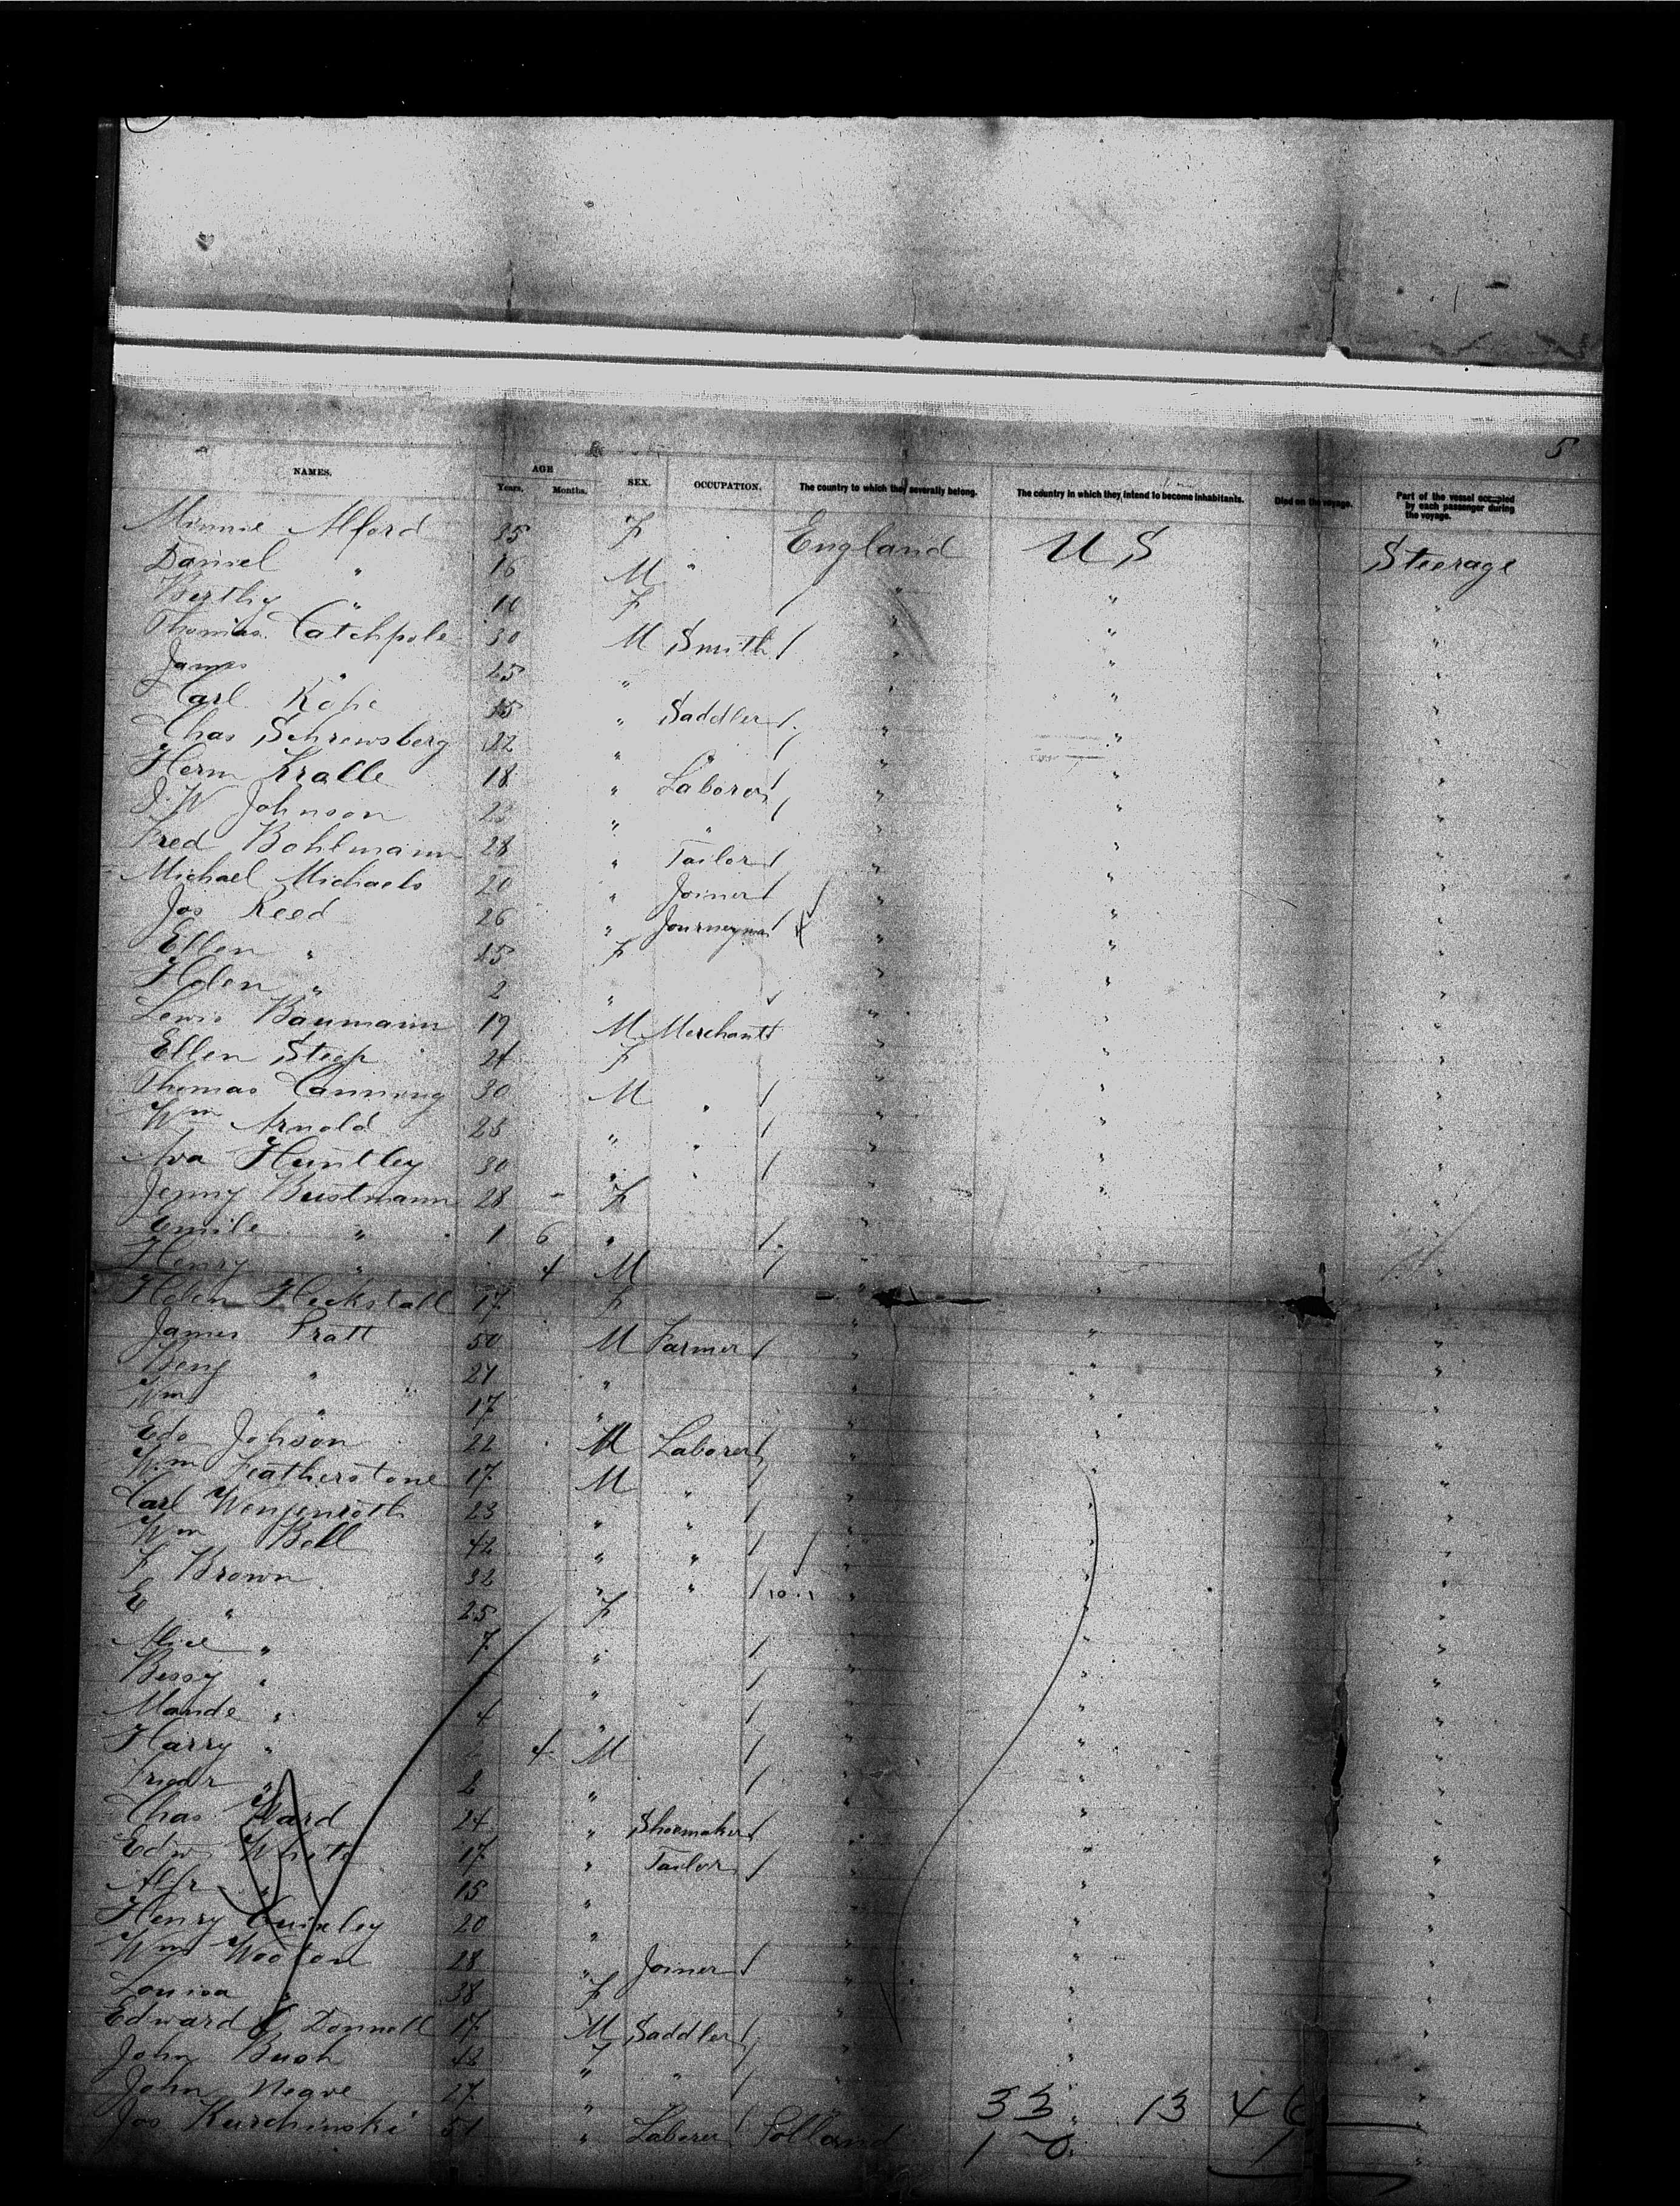 5
NAMES. AGE Years. Months. SEX. OCCUPATION. The country to which they severally belong. The country in which they intend to become inhabitants. Died on the voyage. Part of the vessel occupied by each passenger during the voyage.
Minnie Alford 35 F England U S Steerage
Daniel " 16 M " " " "
Berthy " 10 F " " "
Thomas Catchpole 30 M Smith " " "
James " 25 " " " "
Carl Kope " Saddler " " "
Chas Schrewsberg 22 " " " " "
Herm Kralle 18 " Laborer " " "
J. W Johnson " " " " "
Fred Bohlmann 28 " Tailor " " "
Michael Michaels 20 " Joiner " " "
Jos Reed 26 " Journeyman " " "
Ellen " 25 F " " "
Helen " 2 " " " "
Lewis Baumann 19 M Merchant " " "
Ellen Steep 24 F " " "
Thomas Canning 30 M " " " "
Wm Arnold 23 " " " " "
Ava Huntley 30 " " " " "
Jenny Bustmann 28 - F " " "
Emile " 1 6 " " " "
Henry " 4 M " " "
Helen Heckstall 17 F " " "
James Pratt 50 M Farmer " " "
Benj " 27 " " " "
Wm " 17 " " " "
Edo Johson 22 M Laborer " " "
Wm Featherstone 17 M " " " "
Carl Wengenroth 23 " " " " "
Wm Bell 42 " " " " "
F Brown 32 " " 10.1 " " "
E " 25 F " " "
Alice " 7 " " " "
Bessy " " " " "
Maude " 4 " " " "
Harry " 4 M " " "
Friedr " 2 " " " "
Chas Ward 24 " Shoemaker " " "
Edw White 17 " Tailor " " "
Alfr " 15 " " " "
Henry Quinley 20 " " " "
Wm Wooton 28 " Joiner " " "
Louisa " 38 F " " "
Edward O Donnell 17 M Saddler " " "
John Bush 48 " " " " "
John Neave 27 " " 33 13 46 "
Jos Kurchinski 51 " Laborer Polland 1 0 1 "